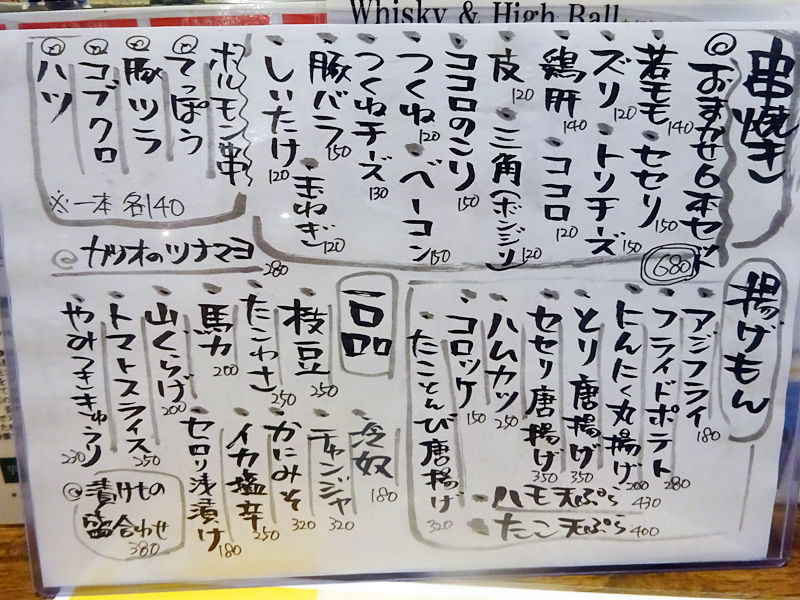 Whisky & High Ball
串焼き
◎おまかせ6本セット 680
若モモ 140
セセリ 150
ズリ 120
トリチーズ 150
鶏肝 140
ココロ 120
皮 120
三角(ボンジリ) 120
ココロのこり 150
つくね 120
ベーコン 150
つくねチーズ 130
豚バラ 150
玉ねぎ 120
しいたけ 120
ホルモン串
てっぽう
豚ツラ
コブクロ
ハツ
※一本 各140
◎カツオのツナマヨ 280
揚げもん
アジフライ 180
フライドポテト 280
にんにく丸揚げ 200
とり唐揚げ 350
セセリ唐揚げ 350
ハムカツ 250
コロッケ 150
たことんび唐揚げ 320
ハモ天ぷら 430
たこ天ぷら 400
一品
冷奴 180
枝豆 250
チャンジャ 320
たこわさ 250
かにみそ 320
馬力 200
イカ塩辛 250
山くらげ 200
セロリ浅漬け 180
トマトスライス 250
やみつききゅうり 230
◎漬けもの
盛合わせ
380